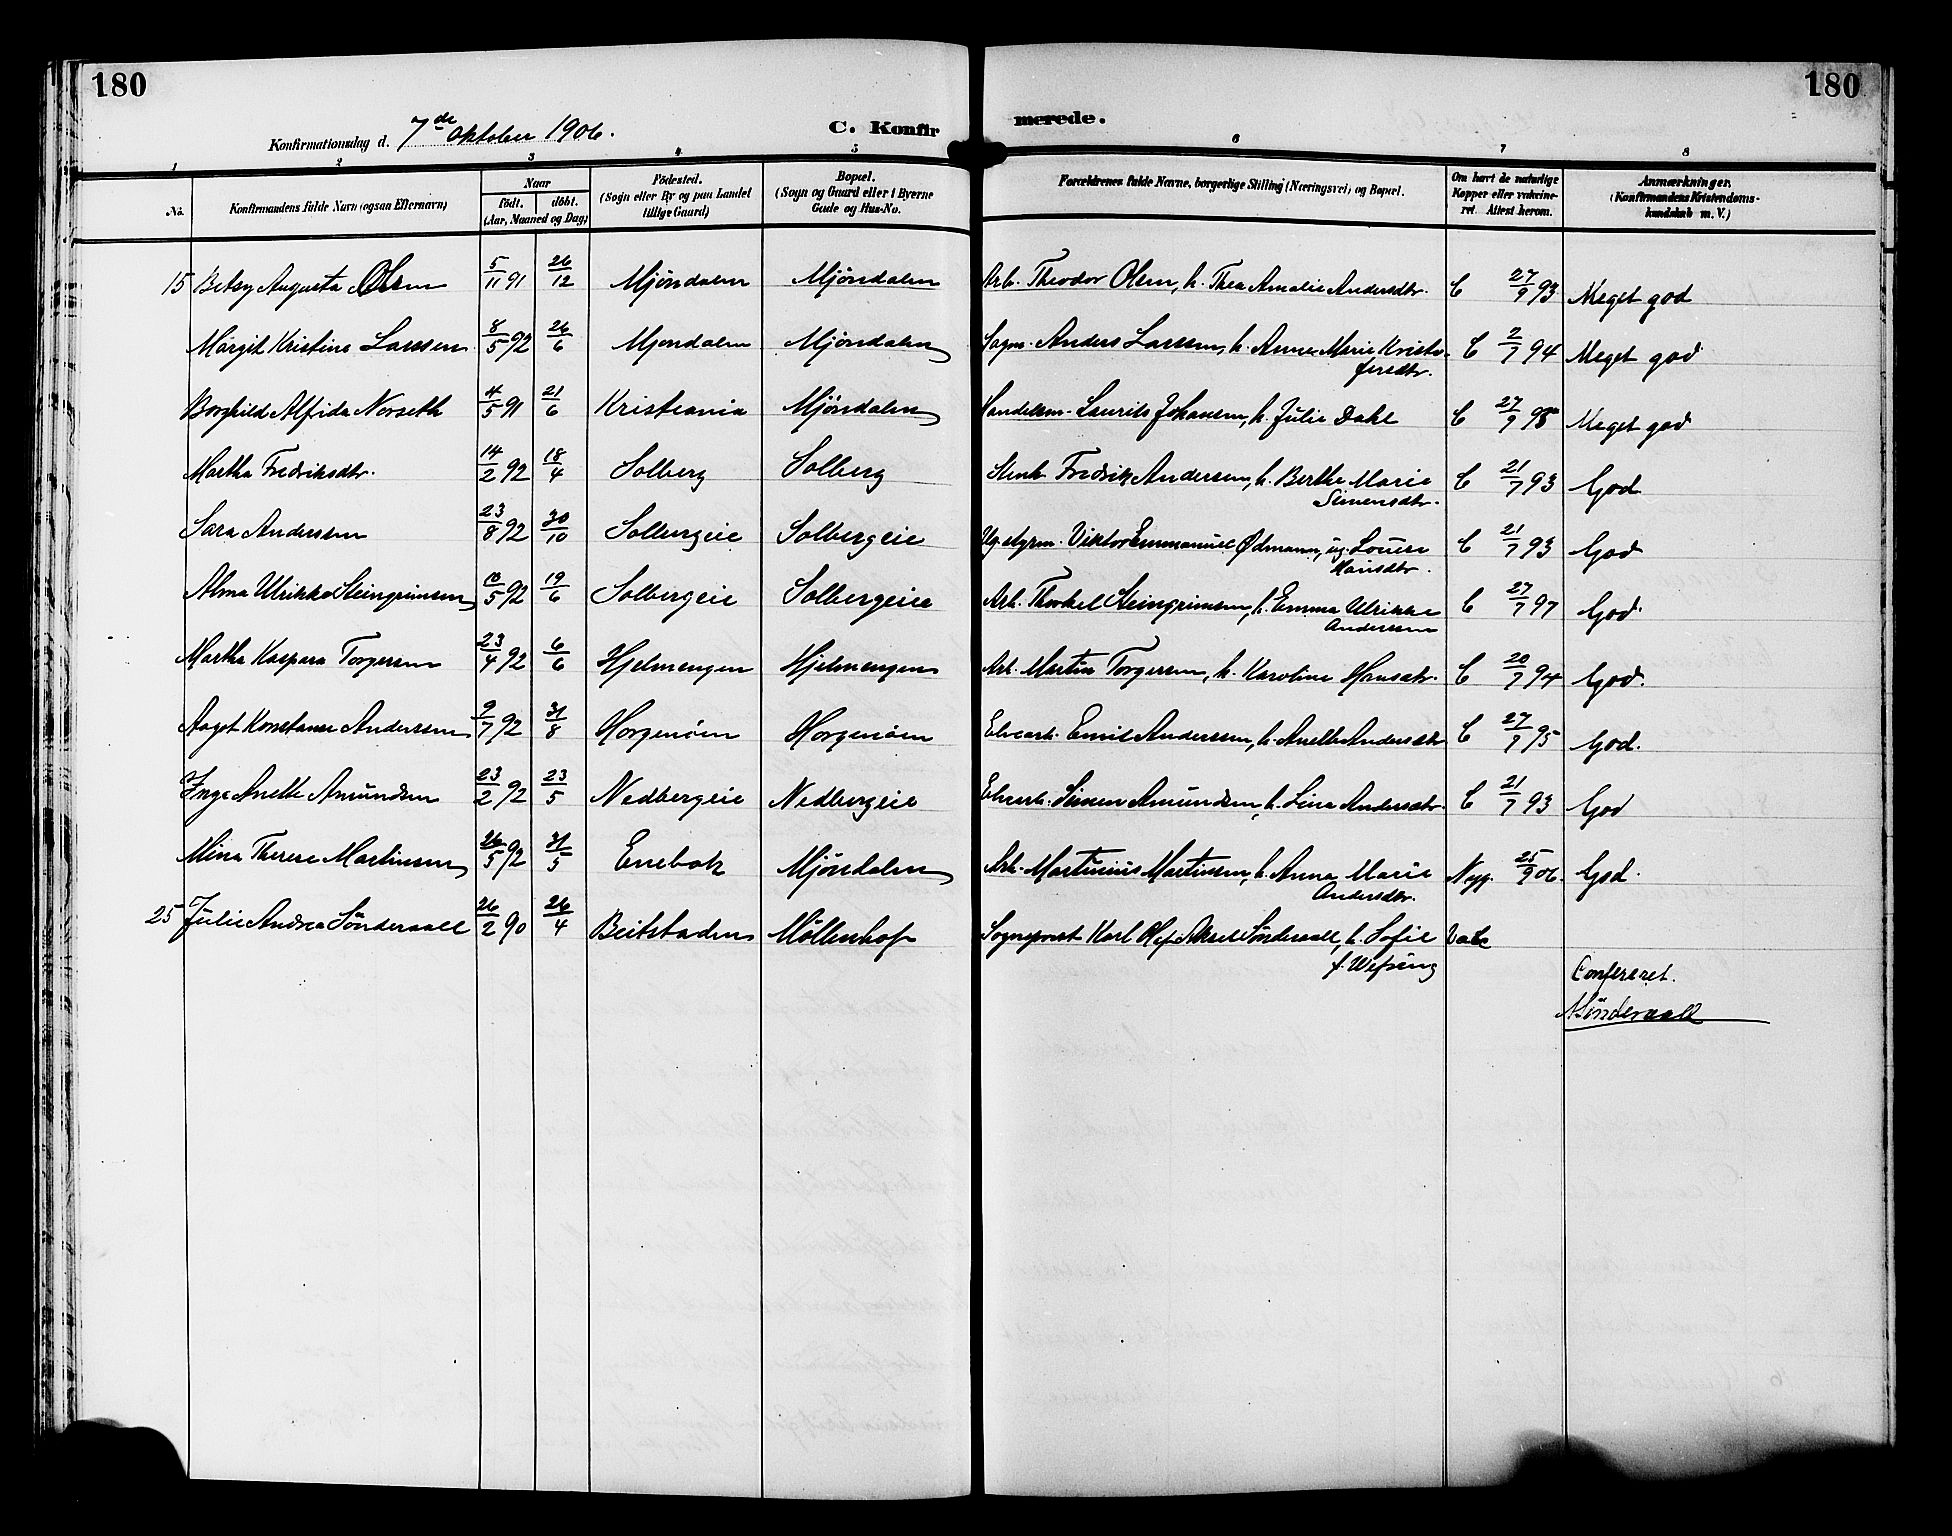 180
180
Konfirmationsdag d. 7de oktober 1906.
C. Konfirmerede.
1 2 3 4 5 6 7 8
No. Konfirmandens fulde Navn (ogsaa Efternavn) Naar født. døbt. (Aar, Maaned og Dag) Fødested. (Sogn eller By og paa Landet tillige Gaard) Bopæl. (Sogn og Gaard eller i Byerne Gade og Hus-No. Forældrenes fulde Navne, borgerlige Stilling (Næringsvei) og Bopæl. Om havt de naturlige Kopper eller vakcineret. Attest herom. Anmærkninger. (Konfirmandens Kristendomskundskab m. V.)
15 Betsy Augusta Olsen 5/11 91 26/12 Mjöndalen Mjöndalen Arb. Theodor Olsen, h. Thea Amalie Andersdtr. C 27/9 93 Meget god
Margit Kristine Larsen 8/5 92 26/6 Mjöndalen Mjöndalen Anders Larsen, h. Anne Marie Kristoffersdtr. C 2/7 94 Meget god
Borghild Alfida Norseth 4/5 91 21/6 Kristiania Mjöndalen Handelsm. Laurits Johansen, h. Julie Dahl C 27/9 98 Meget god
Martha Fredriksdtr. 14/2 92 18/4 Solberg Solberg Fredrik Andersen, h. Berthe Marie Simensdtr. C 21/7 93 God
Sara Andersen 23/8 92 30/10 Solbergeie Solbergeie Ug. styrm. Viktor Emmanuel Ödmann, ug. Louise Hansdtr. C 21/7 93 God
Alma Ulrikke Steingrimsen 10/5 92 19/6 Solbergeie Solbergeie Arb. Thorkel Steingrimsen, h. Emma Ulrikke Andersen C 27/7 97 God
Martha Kaspara Torgersen 23/4 92 6/6 Hjelmengen Hjelmengen Arb. Martin Torgersen, h. Karoline Hansdtr. C 20/7 94 God.
Aagot Konstanse Andersen 9/7 92 31/8 Horgenöien Horgenöien Elvearb. Emil Andersen, h. Anette Andersdtr C 27/7 95 God.
Inga Anette Amundsen 23/2 92 23/5 Nedbergeie Nedbergeie Elvearb. Simen Amundsen, h. Lina Andersdtr. C 21/7 93 God
Mina Therese Martinsen 26/5 92 31/5 Enebak Mjöndalen Arb. Martinius Martinsen, h. Anna Marie Andersdtr. 25/9 06. God.
25 Julie Andrea Sönderaall 26/2 90 26/4 Beitstaden Möllenhof Sogneprest Karl Aksel Sönderaall, h. Sofie f. Wefring
Confereret.
Sönderaall